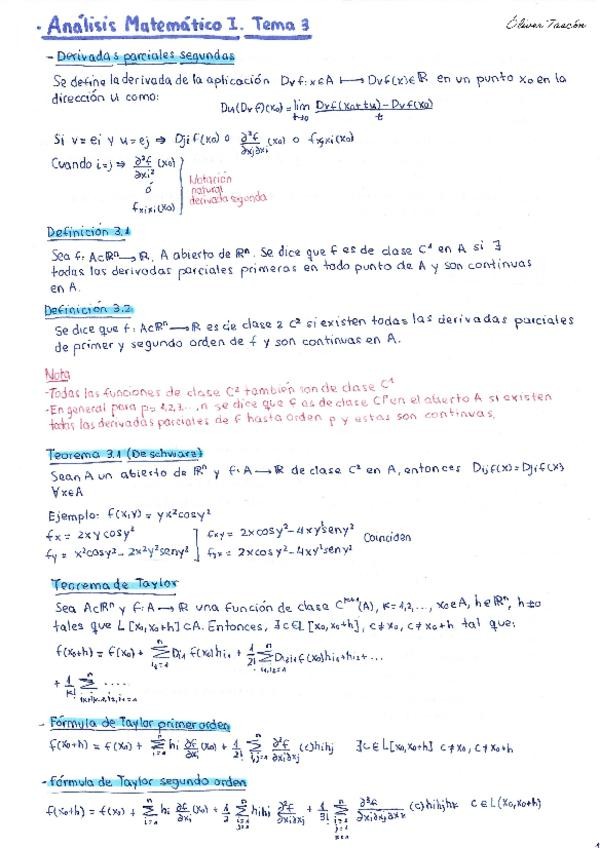 · Análisis Matemático I. Tema 3
Óliver Tascón
- Derivadas parciales segundas
Se define la derivada de la aplicación Dvf: x∈A ⟼ Dvf(x)∈ℝ en un punto x₀ en la
dirección u como:
Du(Dvf)(x₀) = lim t→0 (Dvf(x₀+tu) - Dvf(x₀))/t
Si v=ei y u=ej ⇒ Djif(x₀) o ∂²f/∂xj∂xi (x₀) o fxjxi(x₀)
Cuando i=j ⇒ ∂²f/∂xi² (x₀)
ó
fxixi(x₀)
Notación
natural
derivada segunda
Definición 3.1
Sea f: A⊂ℝⁿ → ℝ, A abierto de ℝⁿ. Se dice que f es de clase C¹ en A si ∃
todas las derivadas parciales primeras en todo punto de A y son continuas
en A.
Definición 3.2
Se dice que f: A⊂ℝⁿ → ℝ es de clase 2 C² si existen todas las derivadas parciales
de primer y segundo orden de f y son continuas en A.
Nota
- Todas las funciones de clase C² también son de clase C¹
- En general para p=1,2,3,...,n se dice que f es de clase Cᵖ en el abierto A si existen
todas las derivadas parciales de f hasta orden p y estas son continuas.
Teorema 3.1 (De schwarz)
Sean A un abierto de ℝⁿ y f: A → ℝ de clase C² en A, entonces Dijf(x)=Djif(x)
∀x∈A
Ejemplo: f(x,y) = yx²cosy²
fx = 2xycosy²
fy = x²cosy² - 2x²y²seny²
fxy = 2xcosy² - 4xy²seny²
fyx = 2xcosy² - 4xy²seny²
Coinciden
Teorema de Taylor
Sea A⊂ℝⁿ y f: A → ℝ una función de clase Cᵏ⁺¹(A), k=1,2,..., x₀∈A, h∈ℝⁿ, h≠0
tales que L[x₀,x₀+h]⊂A. Entonces, ∃c∈L[x₀,x₀+h], c≠x₀, c≠x₀+h tal que:
f(x₀+h) = f(x₀) + Σ Di₁f(x₀)hi₁ + 1/2! Σ Di₂i₁f(x₀)hi₁hi₂ + ...
+ 1/k! Σ .....
- Fórmula de Taylor primer orden
f(x₀+h) = f(x₀) + Σ hi ∂f/∂xi (x₀) + 1/2! Σ ∂²f/∂xi∂xj (c)hihj ∃c∈L[x₀,x₀+h] c≠x₀, c≠x₀+h
- fórmula de Taylor segundo orden
f(x₀+h) = f(x₀) + Σ hi ∂f/∂xi (x₀) + 1/2 Σ hihj ∂²f/∂xi∂xj + 1/3! Σ ∂³f/∂xi∂xj∂xk (c)hihjhk c∈L(x₀,x₀+h)
1